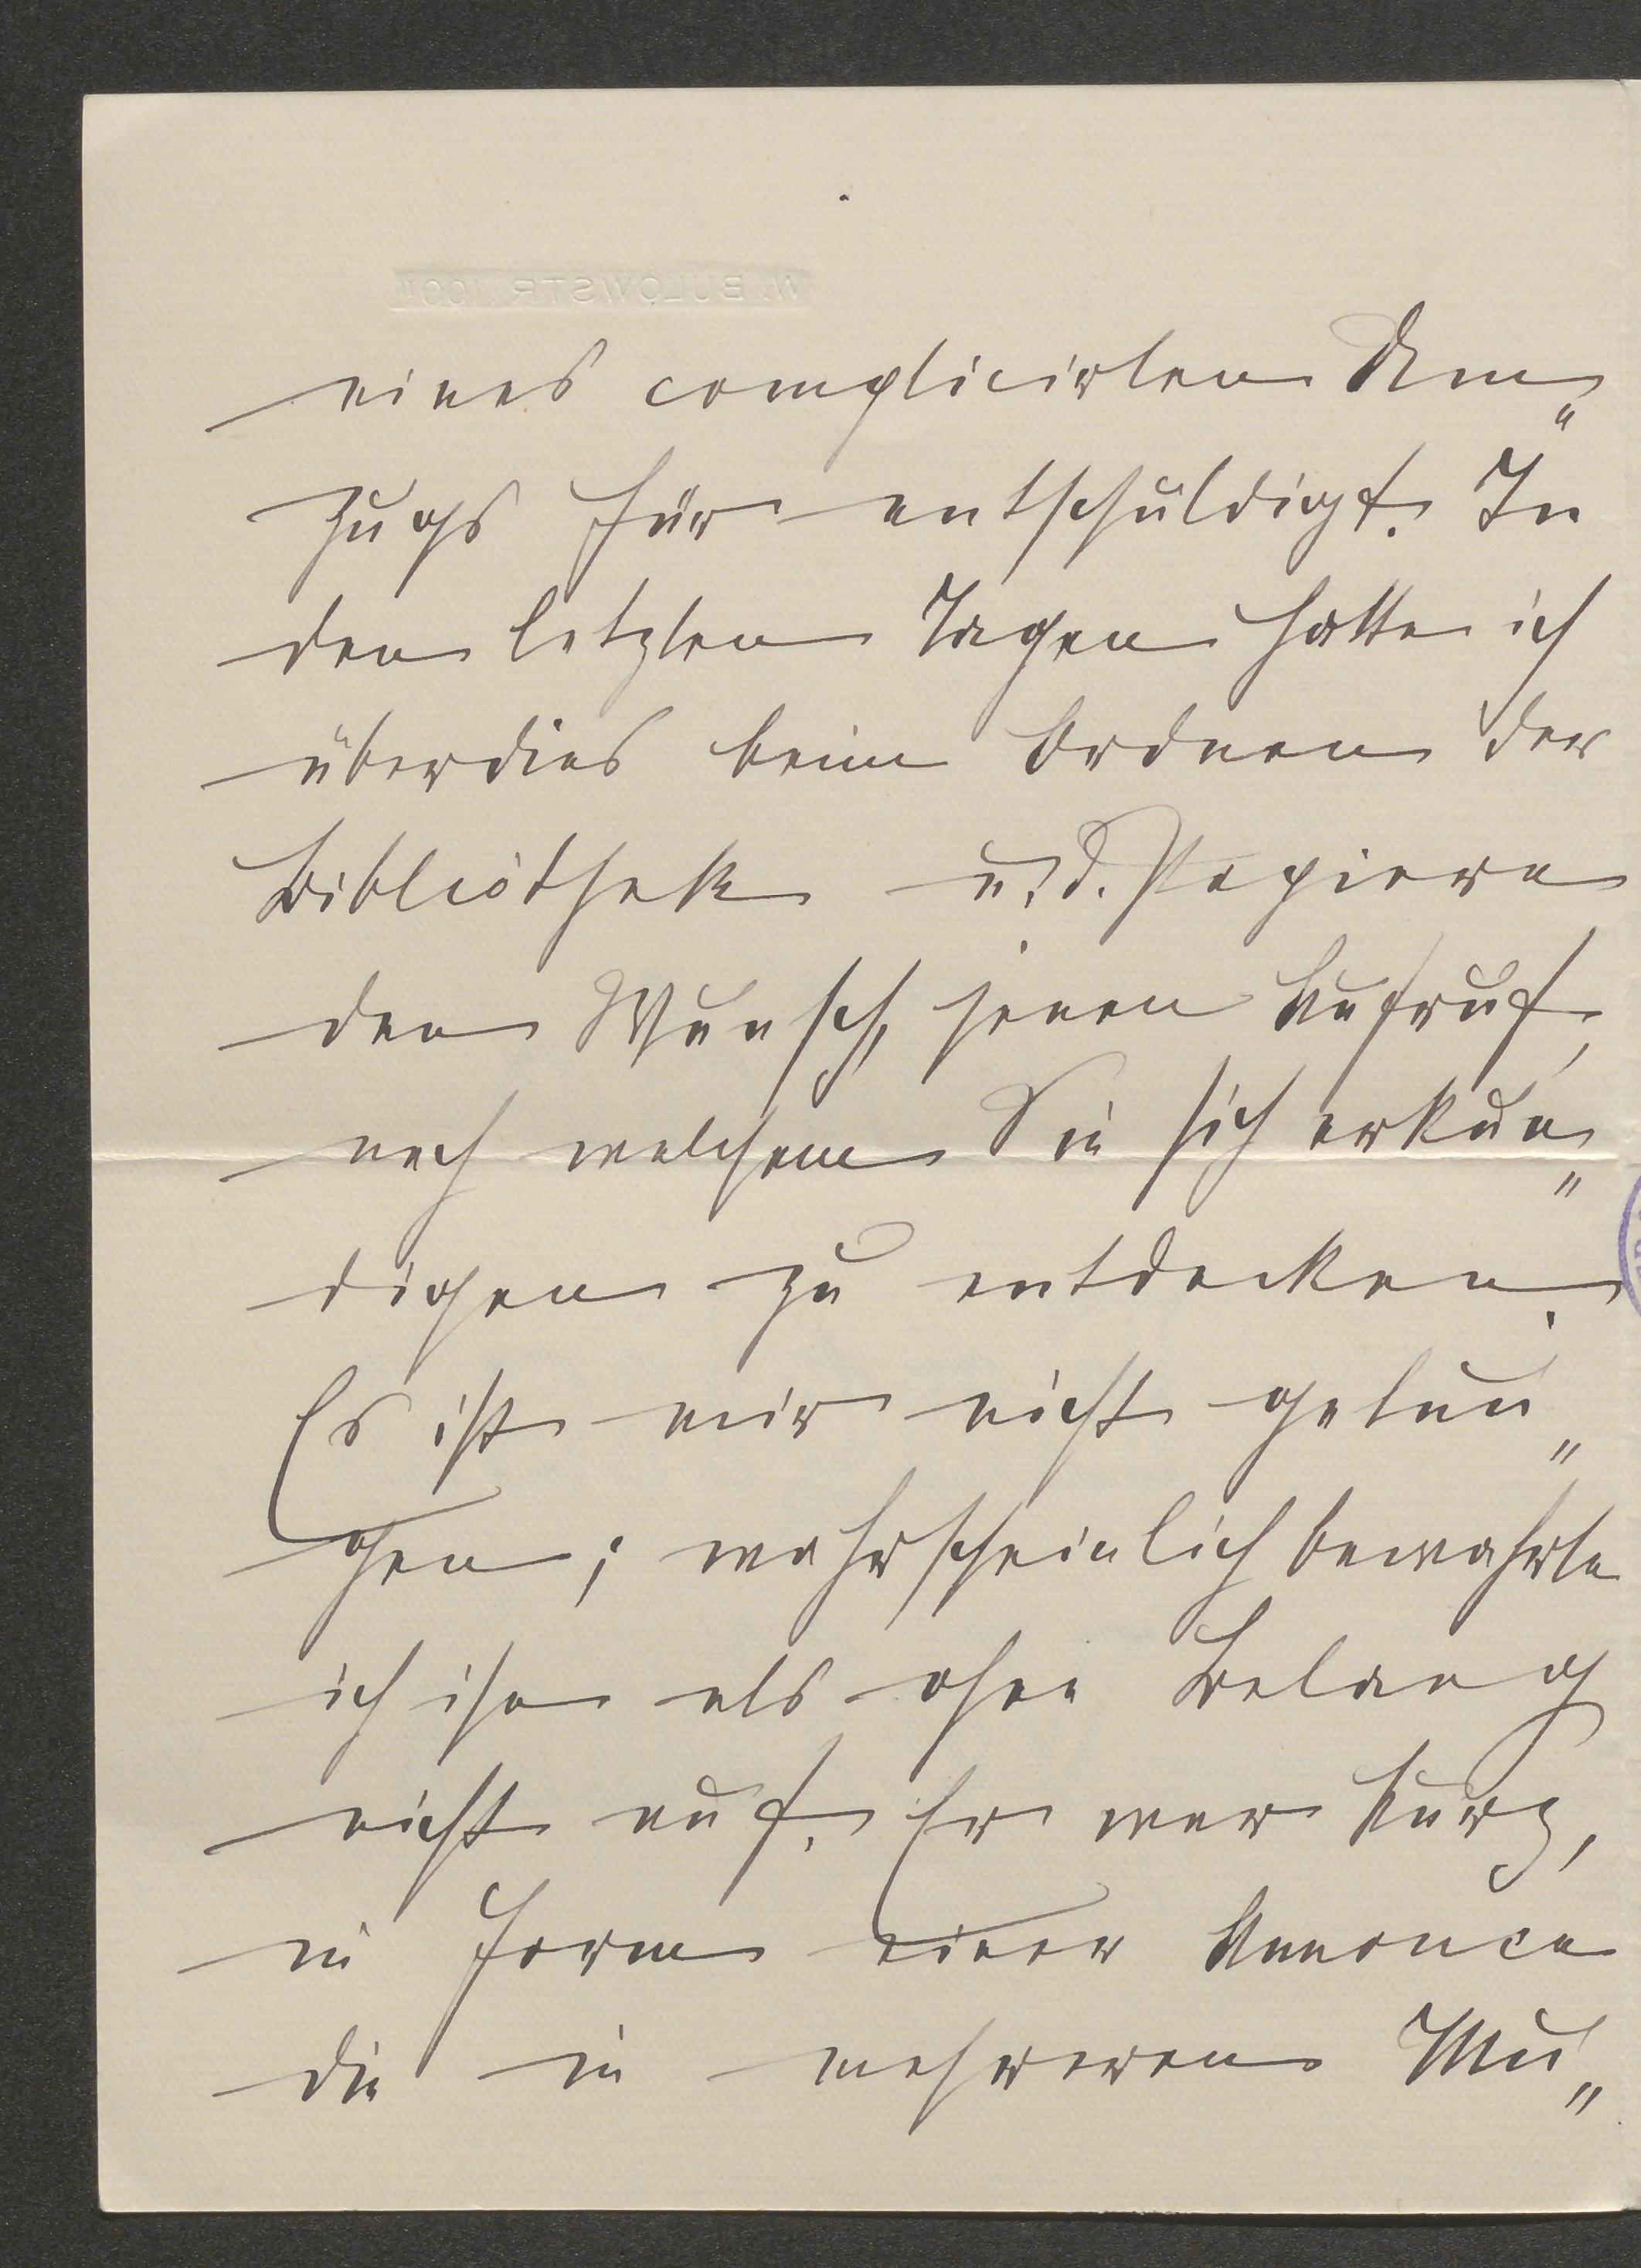 W. BÜLOWSTR. 100II
eines complicirten Um„
zugs für entschuldigt. In
den letzten Tagen hatte ich
überdies beim Ordnen der
Bibliothek u. d. Papiere
den Wunsch, jenen Aufruf,
nach welchem Sie sich erkun„
digen zu entdecken.
Es ist mir nicht gelun„
gen; wahrscheinlich bewahrte
ich ihn als ohne Belang
nicht auf. Er war kurz,
in Form einer Annonce
die in mehreren Mu„